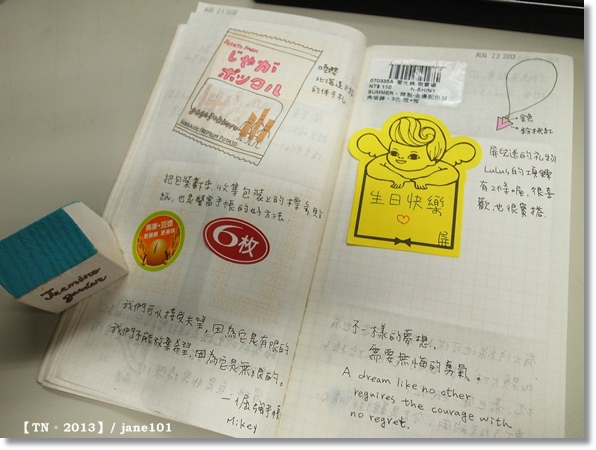 AUG 21 2013
POTATO FARM
じゃが
ポックル
HOKKAIDO PREMIUM POTATO
北海道
的伴手禮
把包裝畫下，收集包裝上的標籤貼
紙，也是豐富手帳的好方法。
6枚
Jasmine
garden
我們可以接受失望，因為它是有限的
我們不能放棄希望，因為它是無限的。
—倔強手帳
Mikey
AUG 22 2013
070835A
NT$ 110
N-SHINY
SUMMER
金色
粉桃紅
屏兒送的礼物
Lulus的項鍊
有2條呢，很喜
歡，也很實搭
生日快樂
屏
不一樣的夢想，
需要無悔的勇氣。
A dream like no other
requires the courage with
no regret.
【TN。2013】/ jane101